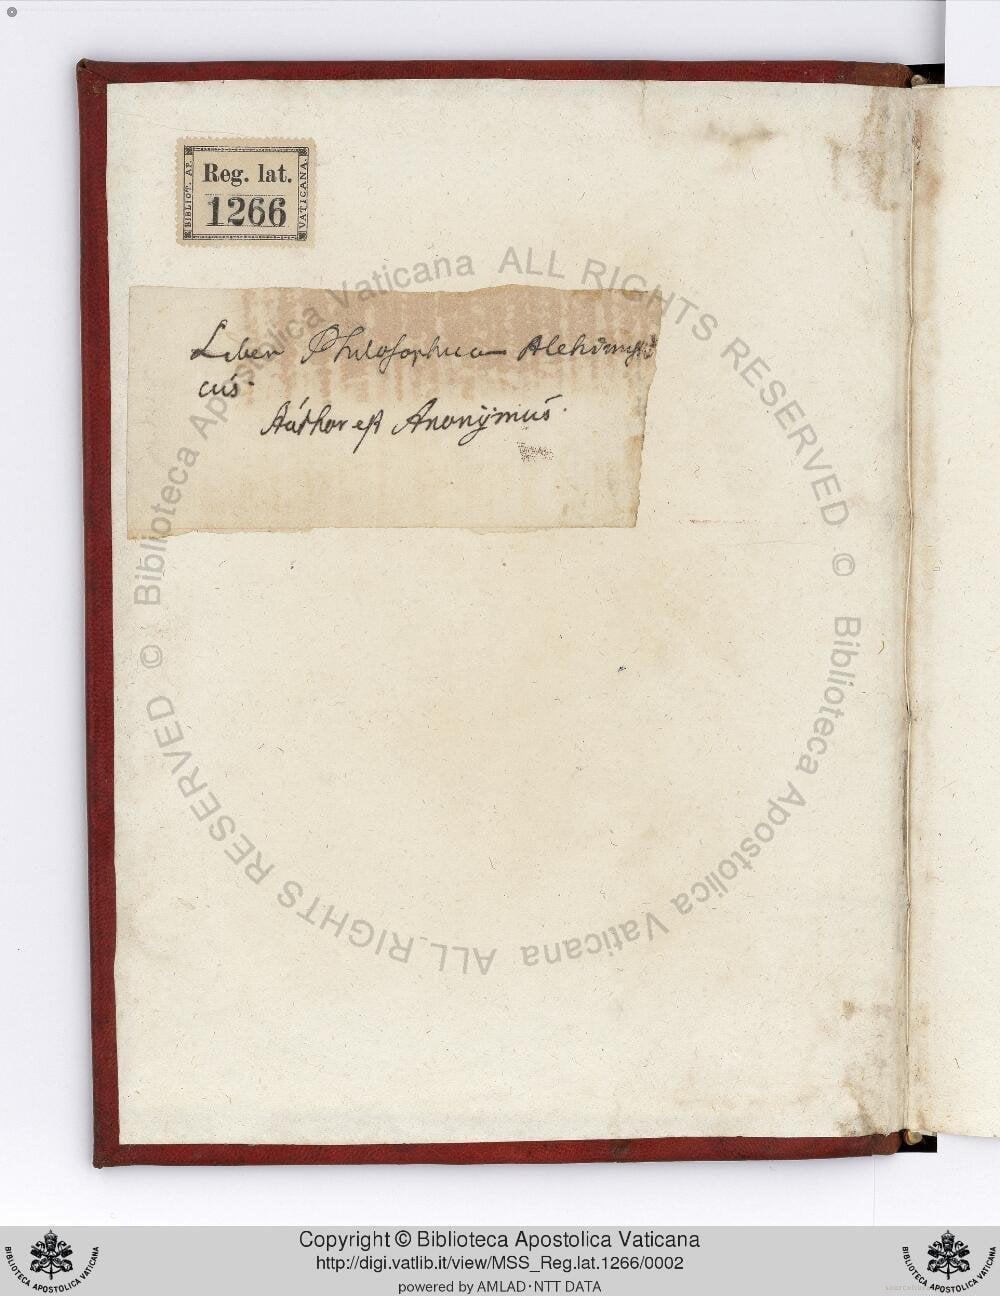 BIBLIOT. AP. VATICANA.
Reg. lat.
1266
Liber Philosophico Alchimisti
cus.
Author est Anonymus.
© Biblioteca Apostolica Vaticana ALL RIGHTS RESERVED © Biblioteca Apostolica Vaticana ALL RIGHTS RESERVED
Copyright © Biblioteca Apostolica Vaticana
http://digi.vatlib.it/view/MSS_Reg.lat.1266/0002
powered by AMLAD·NTT DATA
BIBLIOTECA APOSTOLICA VATICANA
BIBLIOTECA APOSTOLICA VATICANA